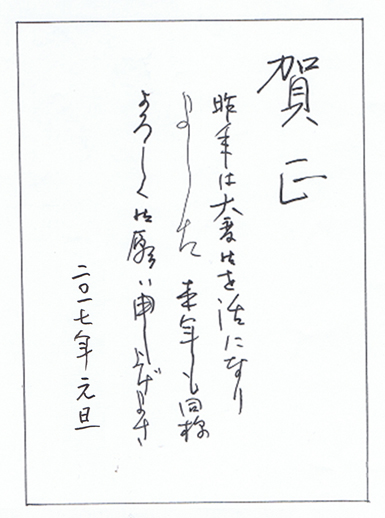 賀正
昨年は大変お世話になり
ました 来年も同様
よろしくお願い申し上げます
二〇一七年 元旦